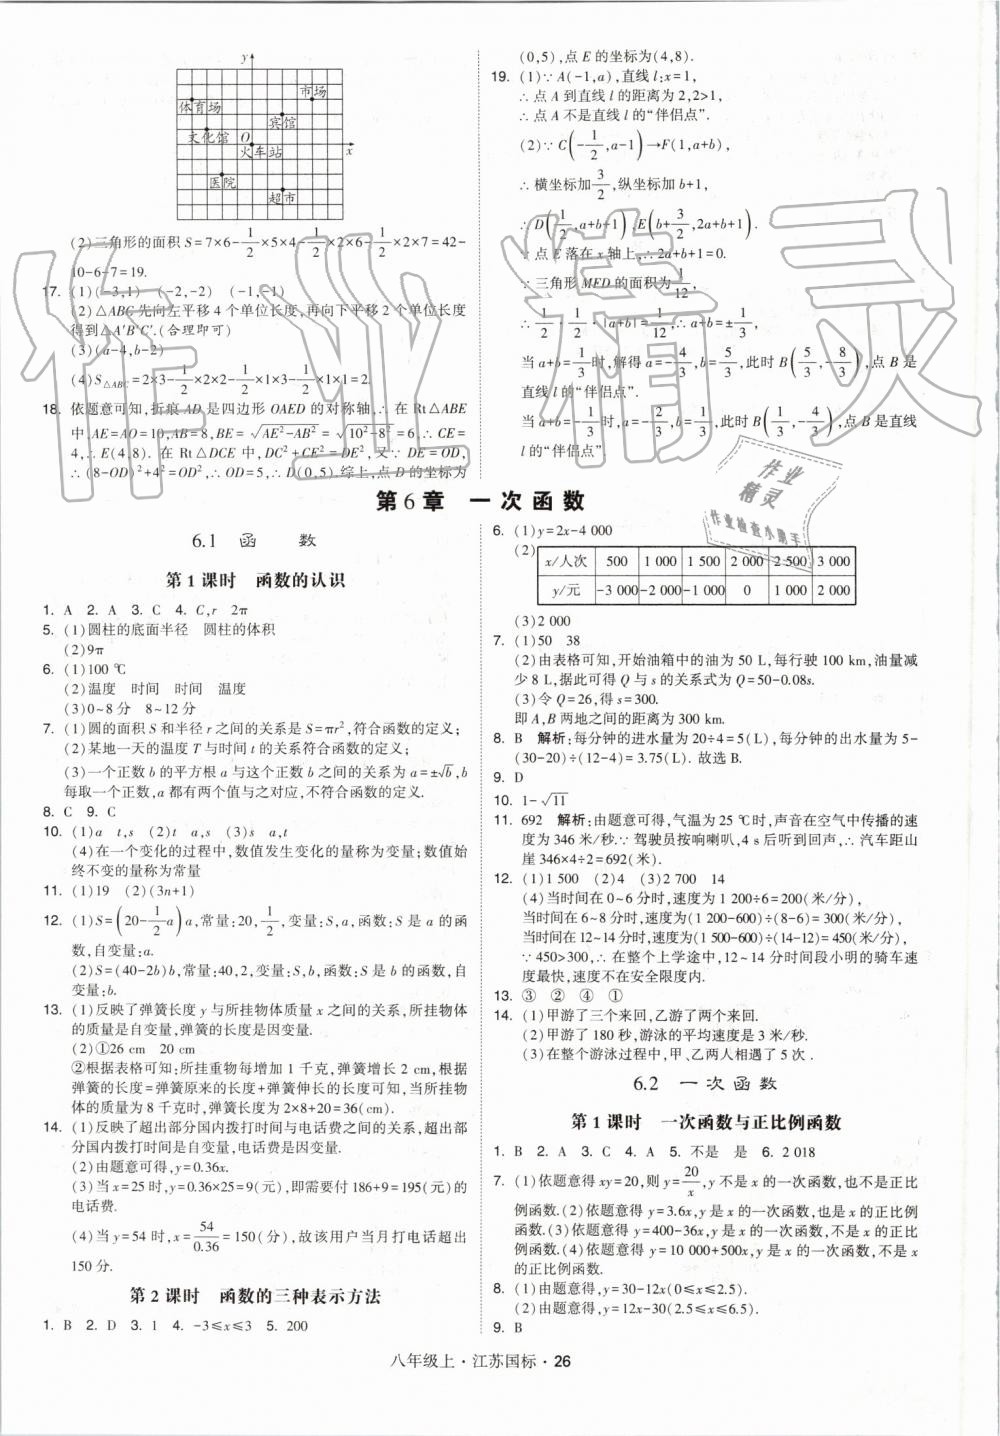 y
市场
体育场
宾馆
文化馆 O
火车站 x
医院
超市
(2)三角形的面积 S=7×6-1/2×5×4-1/2×2×6-1/2×2×7=42-
10-6-7=19.
17. (1)(-3,1) (-2,-2) (-1,-1)
(2)△ABC 先向左平移 4 个单位长度,再向下平移 2 个单位长度
得到△A′B′C′.(合理即可)
(3)(a-4,b-2)
(4)S△ABC=2×3-1/2×2×2-1/2×1×3-1/2×1×1=2.
18. 依题意可知,折痕 AD 是四边形 OAED 的对称轴,∴在 Rt△ABE
中,AE=AO=10,AB=8,BE=√(AE²-AB²)=√(10²-8²)=6,∴CE=
4,∴E(4,8). 在 Rt△DCE 中,DC²+CE²=DE²,又∵DE=OD,
∴(8-OD)²+4²=OD²,∴OD=5,∴D(0,5).综上,点 D 的坐标为
(0,5),点 E 的坐标为(4,8).
19. (1)∵A(-1,a),直线 l:x=1,
∴点 A 到直线 l 的距离为 2,2>1,
∴点 A 不是直线 l 的“伴侣点”.
(2)∵C(-1/2,a-1)→F(1,a+b),
∴横坐标加3/2,纵坐标加 b+1,
∴D(1/2,a+b+1),E(b+3/2,2a+b+1).
∵点 E 落在 x 轴上,∴2a+b+1=0.
∵三角形 MFD 的面积为1/12,
∴1/2·1/2·|a+b|=1/12,∴a+b=±1/3,
当 a+b=1/3时,解得 a=-4/3,b=5/3,此时 B(5/3,-8/3),点 B 是
直线 l 的“伴侣点”.
当 a+b=-1/3时,a=-2/3,b=1/3,此时 B(1/3,-4/3),点 B 是直线 l 的
“伴侣点”.
第 6 章 一次函数
6.1 函 数
第 1 课时 函数的认识
1. A 2. A 3. C 4. C,r 2π
5. (1)圆柱的底面半径 圆柱的体积
(2)9π
6. (1)100 ℃
(2)温度 时间 时间 温度
(3)0~8 分 8~12 分
7. (1)圆的面积 S 和半径 r 之间的关系是 S=πr²,符合函数的定义;
(2)某地一天的温度 T 与时间 t 的关系符合函数的定义;
(3)一个正数 b 的平方根 a 与这个数 b 之间的关系为 a=±√b,b
每取一个正数,a 都有两个值与之对应,不符合函数的定义.
8. C 9. C
10. (1)a t,s (2)t a,s (3)s a,t
(4)在一个变化的过程中,数值发生变化的量称为变量;数值始
终不变的量称为常量
11. (1)19 (2)(3n+1)
12. (1)S=(20-1/2a)a,常量:20,1/2,变量:S,a,函数:S 是 a 的函
数,自变量:a.
(2)S=(40-2b)b,常量:40,2,变量:S,b,函数:S 是 b 的函数,自
变量:b.
13. (1)反映了弹簧长度 y 与所挂物体质量 x 之间的关系,所挂物体
的质量是自变量,弹簧的长度是因变量.
(2)①26 cm 20 cm
②根据表格可知:所挂重物每增加 1 千克,弹簧增长 2 cm,根据
弹簧的长度=弹簧原来的长度+弹簧伸长的长度可知,当所挂物
体的质量为 8 千克时,弹簧长度为 2×8+20=36(cm).
14. (1)反映了超出部分国内拨打时间与电话费之间的关系,超出部
分国内拨打时间是自变量,电话费是因变量.
(2)由题意可得,y=0.36x.
(3)当 x=25 时,y=0.36×25=9(元),即需要付 186+9=195(元)的
电话费.
(4)当 y=54 时,x=54/0.36=150(分),故该用户当月打电话超出
150 分.
第 2 课时 函数的三种表示方法
1. B 2. D 3. 1 4. -3≤x≤3 5. 200
6. (1)y=2x-4 000
(2)
x/人次 500 1 000 1 500 2 000 2 500 3 000
y/元 -3 000 -2 000 -1 000 0 1 000 2 000
(3)2 000
7. (1)50 38
(2)由表格可知,开始油箱中的油为 50 L,每行驶 100 km,油量减
少 8 L,据此可得 Q 与 s 的关系式为 Q=50-0.08s.
(3)令 Q=26,得 s=300.
即 A,B 两地之间的距离为 300 km.
8. B 解析:每分钟的进水量为 20÷4=5(L),每分钟的出水量为 5-
(30-20)÷(12-4)=3.75(L). 故选 B.
9. D
10. 1-√11
11. 692 解析:由题意可得,气温为 25 ℃时,声音在空气中传播的速
度为 346 米/秒.∵驾驶员按响喇叭,4 s 后听到回声,∴汽车距山
崖 346×4÷2=692(米).
12. (1)1 500 (2)4 (3)2 700 14
(4)当时间在 0~6 分时,速度为 1 200÷6=200(米/分),
当时间在 6~8 分时,速度为(1 200-600)÷(8-6)=300(米/分),
当时间在 12~14 分时,速度为(1 500-600)÷(14-12)=450(米/分),
∵450>300,∴在整个上学途中,12~14 分时间段小明的骑车速
度最快,速度不在安全限度内.
13. ③ ② ④ ①
14. (1)甲游了三个来回,乙游了两个来回.
(2)甲游了 180 秒,游泳的平均速度是 3 米/秒.
(3)在整个游泳过程中,甲、乙两人相遇了 5 次.
6.2 一次函数
第 1 课时 一次函数与正比例函数
1. B 2. A 3. C 4. A 5. 不是 是 6. 2 018
7. (1)依题意得 xy=20,则 y=20/x,y 不是 x 的一次函数,也不是正比
例函数.(2)依题意得 y=3.6x,y 是 x 的一次函数,也是 x 的正比例
函数.(3)依题意得 y=400-36x,y 是 x 的一次函数,不是 x 的正比
例函数.(4)依题意得 y=10 000+500x,y 是 x 的一次函数,不是 x
的正比例函数.
8. (1)由题意得,y=30-12x(0≤x≤2.5).
(2)由题意得,y=12x-30(2.5≤x≤6.5).
9. B
作业精灵
作业
精灵
作业检查小助手
八年级上·江苏国标·26